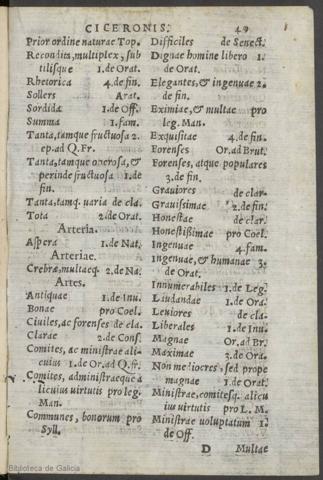 CICERONIS. 49
Prior ordine naturae Top.
Recondita, multiplex, sub
tilisque 1. de Orat.
Rhetorica 4. de fin.
Sollers Arat.
Sordida 1. de Off.
Summa 1. fam.
Tanta, tamque fructuosa 2.
ep. ad Q. Fr.
Tanta, tamque operosa, &
perinde fructuosa 1. de
fin.
Tanta, tamq. uaria de cla.
Tota 2. de Orat.
Arteria.
Aspera 1. de Nat.
Arteriae.
Crebra, multaeq. 2. de Na.
Artes.
Antiquae 1. de Inu.
Bonae pro Coel.
Ciuiles, ac forenses de cla.
Clarae 2. de Cons.
Comites, ac ministrae ali-
cuius 1. de Or. ad Q. fr.
Comites, administraeque a
licuius uirtutis pro leg.
Man.
Communes, bonorum pro
Syll.
Difficiles de Senect.
Dignae homine libero 1.
de Orat.
Elegantes, & ingenuae 2.
de fin.
Eximiae, & multae pro
leg. Man.
Exquisitae 4. de fin.
Forenses Or. ad Brut.
Forenses, atque populares
3. de fin.
Grauiores de clar.
Grauissimae 2. de fin.
Honestae de clar.
Honestissimae pro Coel.
Ingenuae 4. fam.
Ingenuae, & humanae 3.
de Orat.
Innumerabiles 1. de Leg.
Laudandae 1. de Ora.
Leuiores de cla.
Liberales 1. de Inu.
Magnae Or. ad Br.
Maximae 3. de Ora.
Non mediocres, sed prope
magnae 1. de Orat.
Ministrae, comitesq. alicu
ius uirtutis pro L. M.
Ministrae uoluptatum 1.
de Off.
D Multae
Biblioteca de Galicia